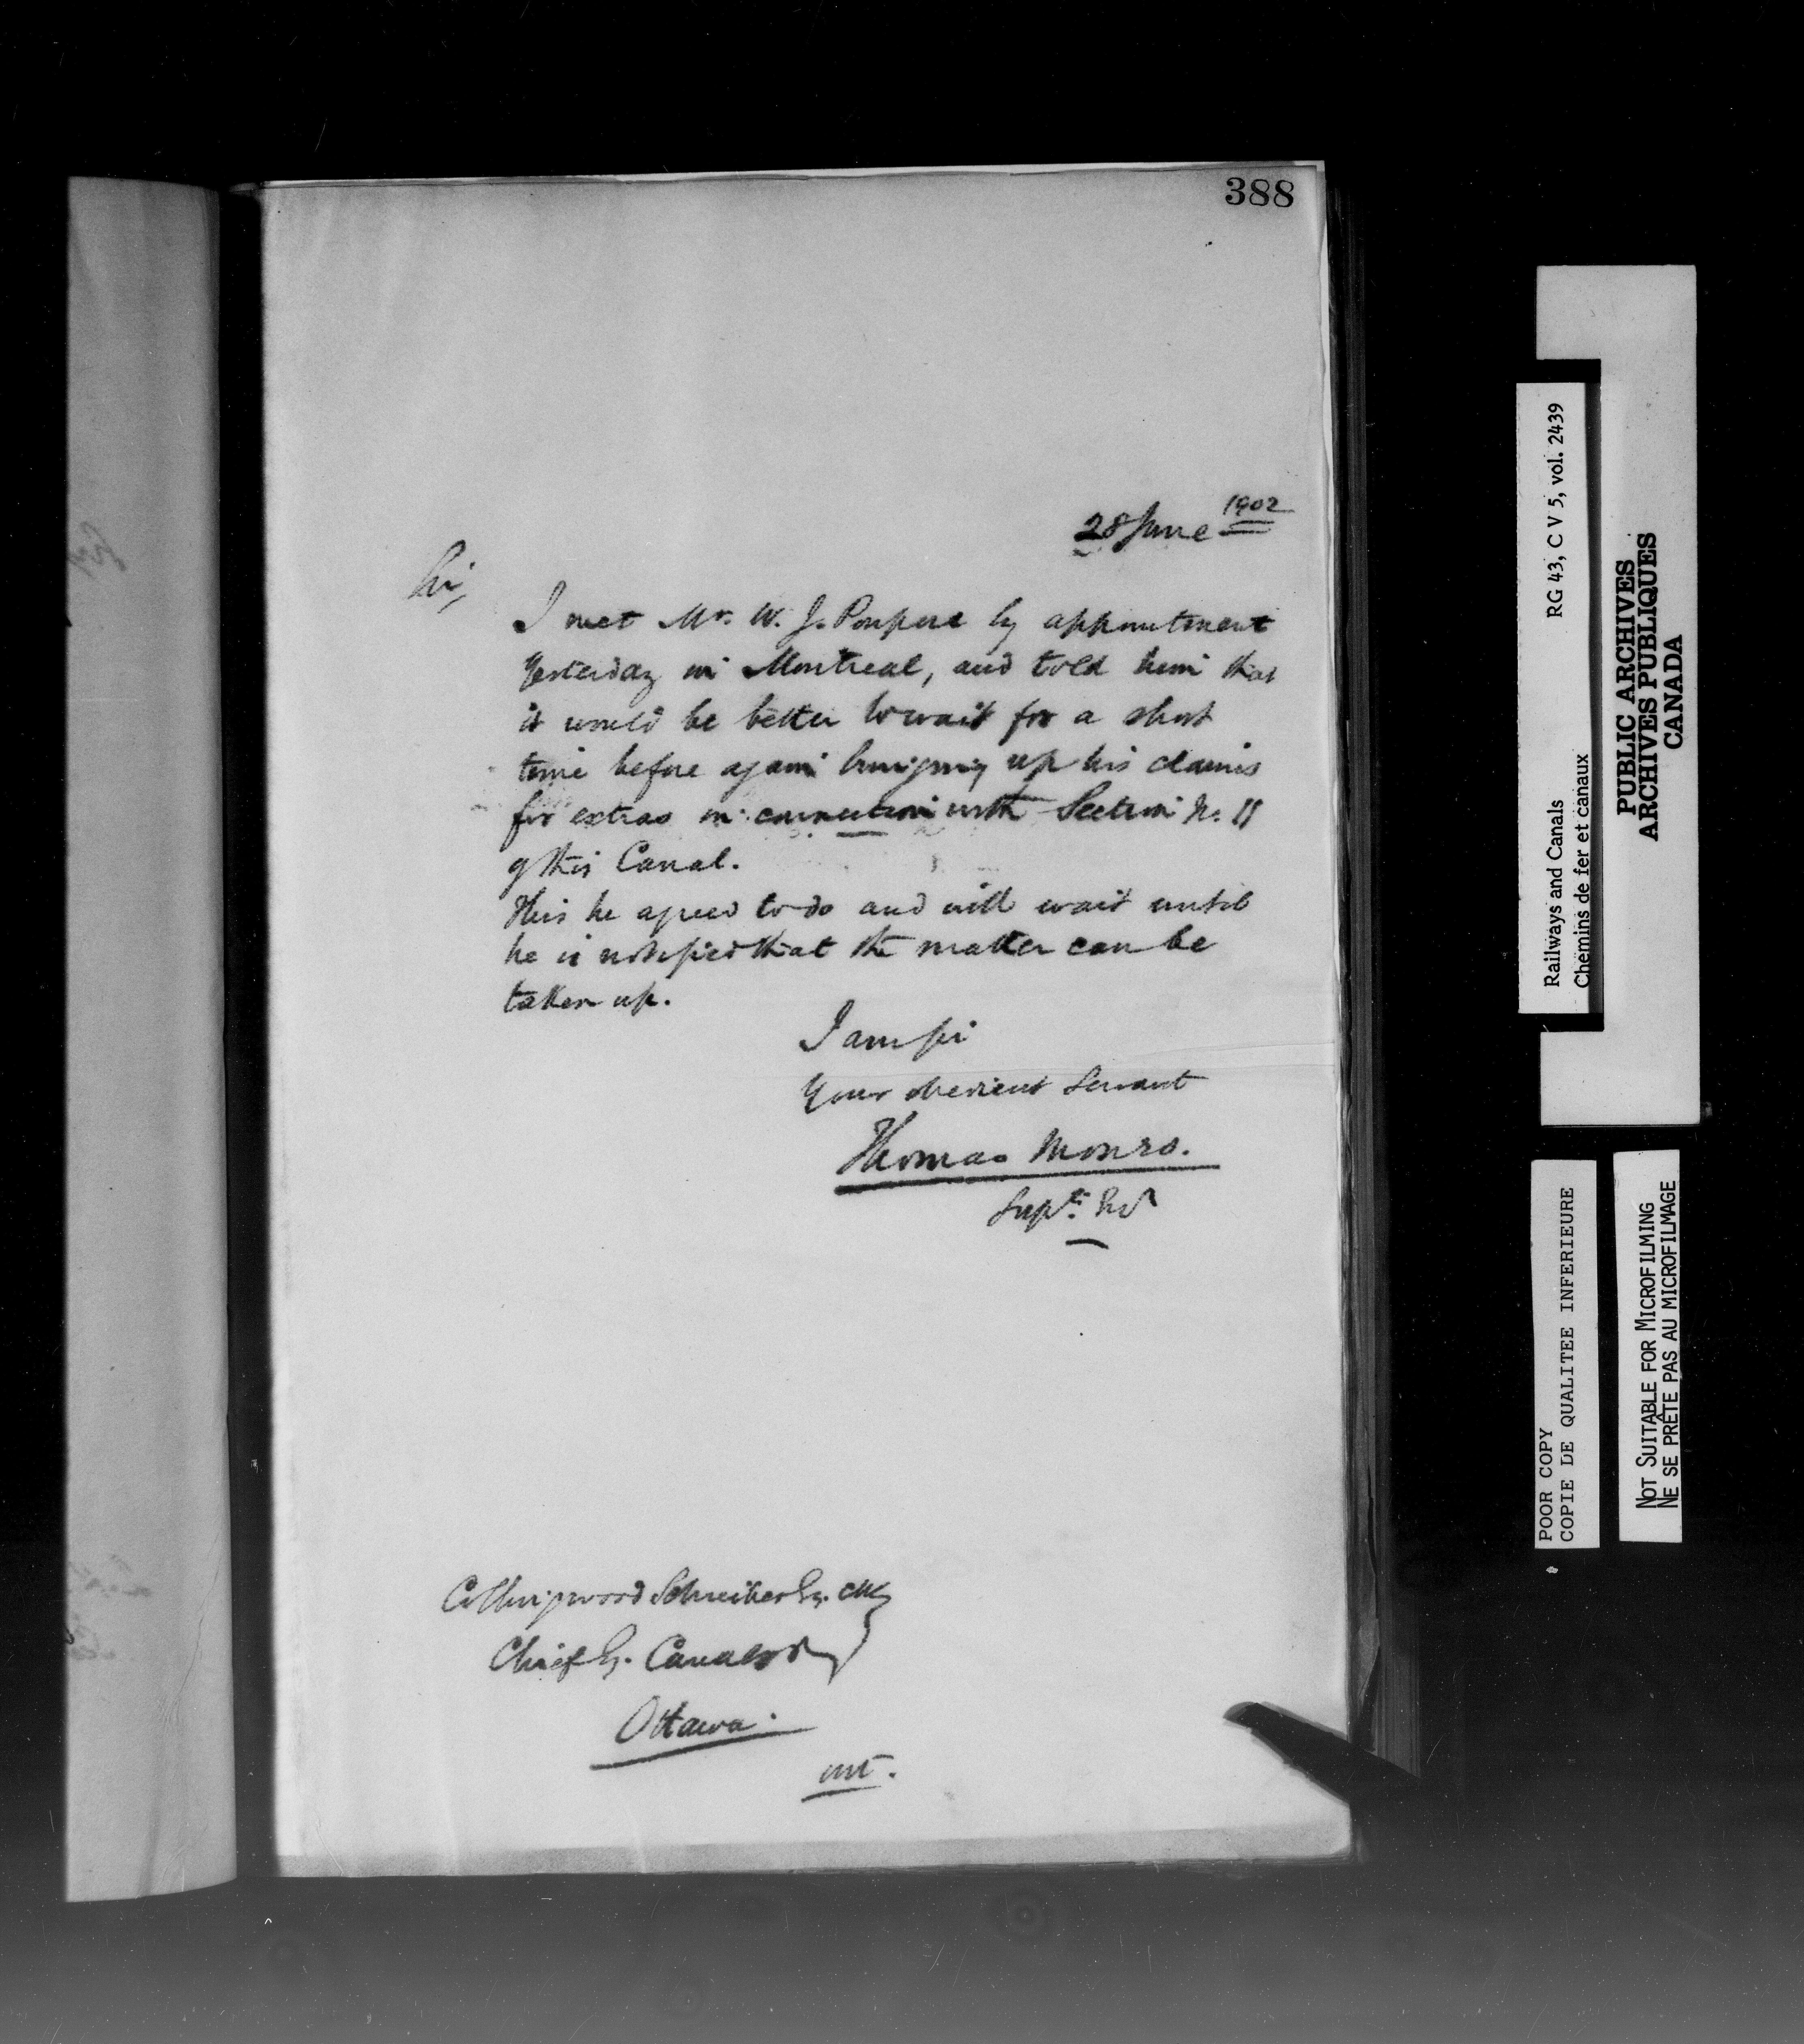 388
28 June 1902
Sir,
I met Mr. W. J. Poupore by appointment
Yesterday in Montreal, and told him that
it would be better to wait for a short
time before again bringing up his claims
for extras in connection with Section No. 11
of this Canal.
This he agreed to do and will wait until
he is notified that the matter can be
taken up.
I am Sir
Your obedient Servant
Thomas Monro.
Supt. Engr
Collingwood Schreiber Esq. CMG
Chief Eng. Canals
Ottawa.
Ont.
Railways and Canals RG 43, C V 5, vol. 2439
Chemins de fer et canaux
PUBLIC ARCHIVES
ARCHIVES PUBLIQUES
CANADA
POOR COPY
COPIE DE QUALITEE INFERIEURE
NOT SUITABLE FOR MICROFILMING
NE SE PRÊTE PAS AU MICROFILMAGE